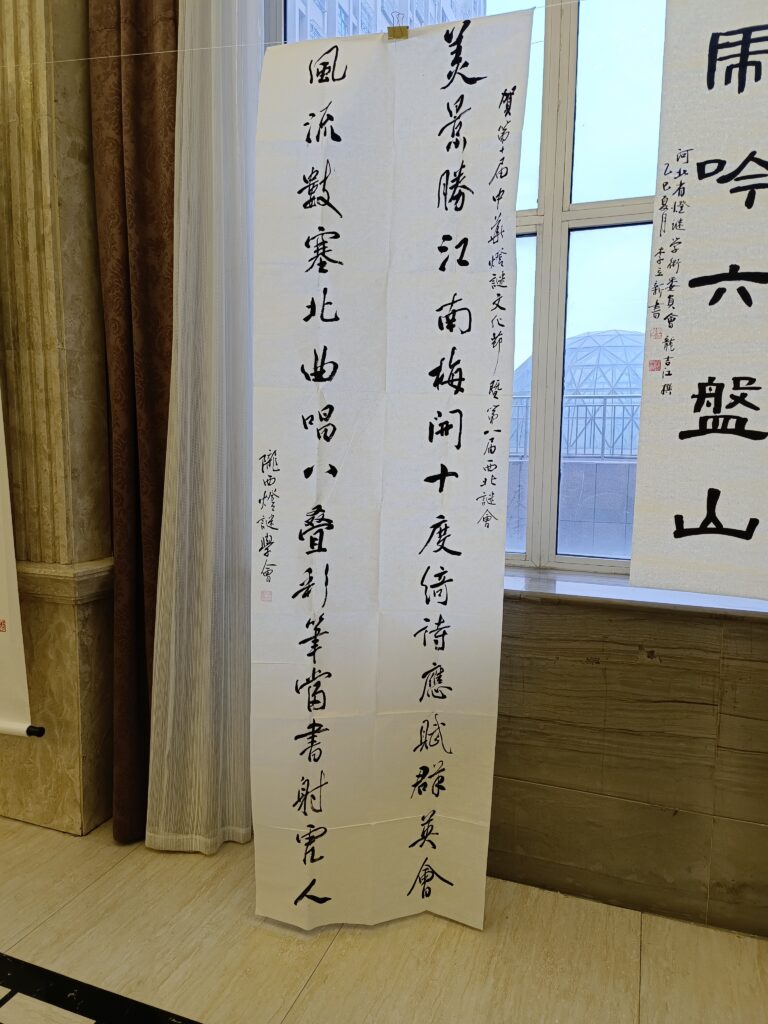 虎吟六盤山
河北省燈謎学術委員會龍吉江撰
乙巳夏月李立新書
賀第十届中華燈謎文化節暨第八届西北謎會
美景勝江南梅開十度綺詩應賦群英會
風流數塞北曲唱八叠彩筆當書射虎人
隴西燈謎學會